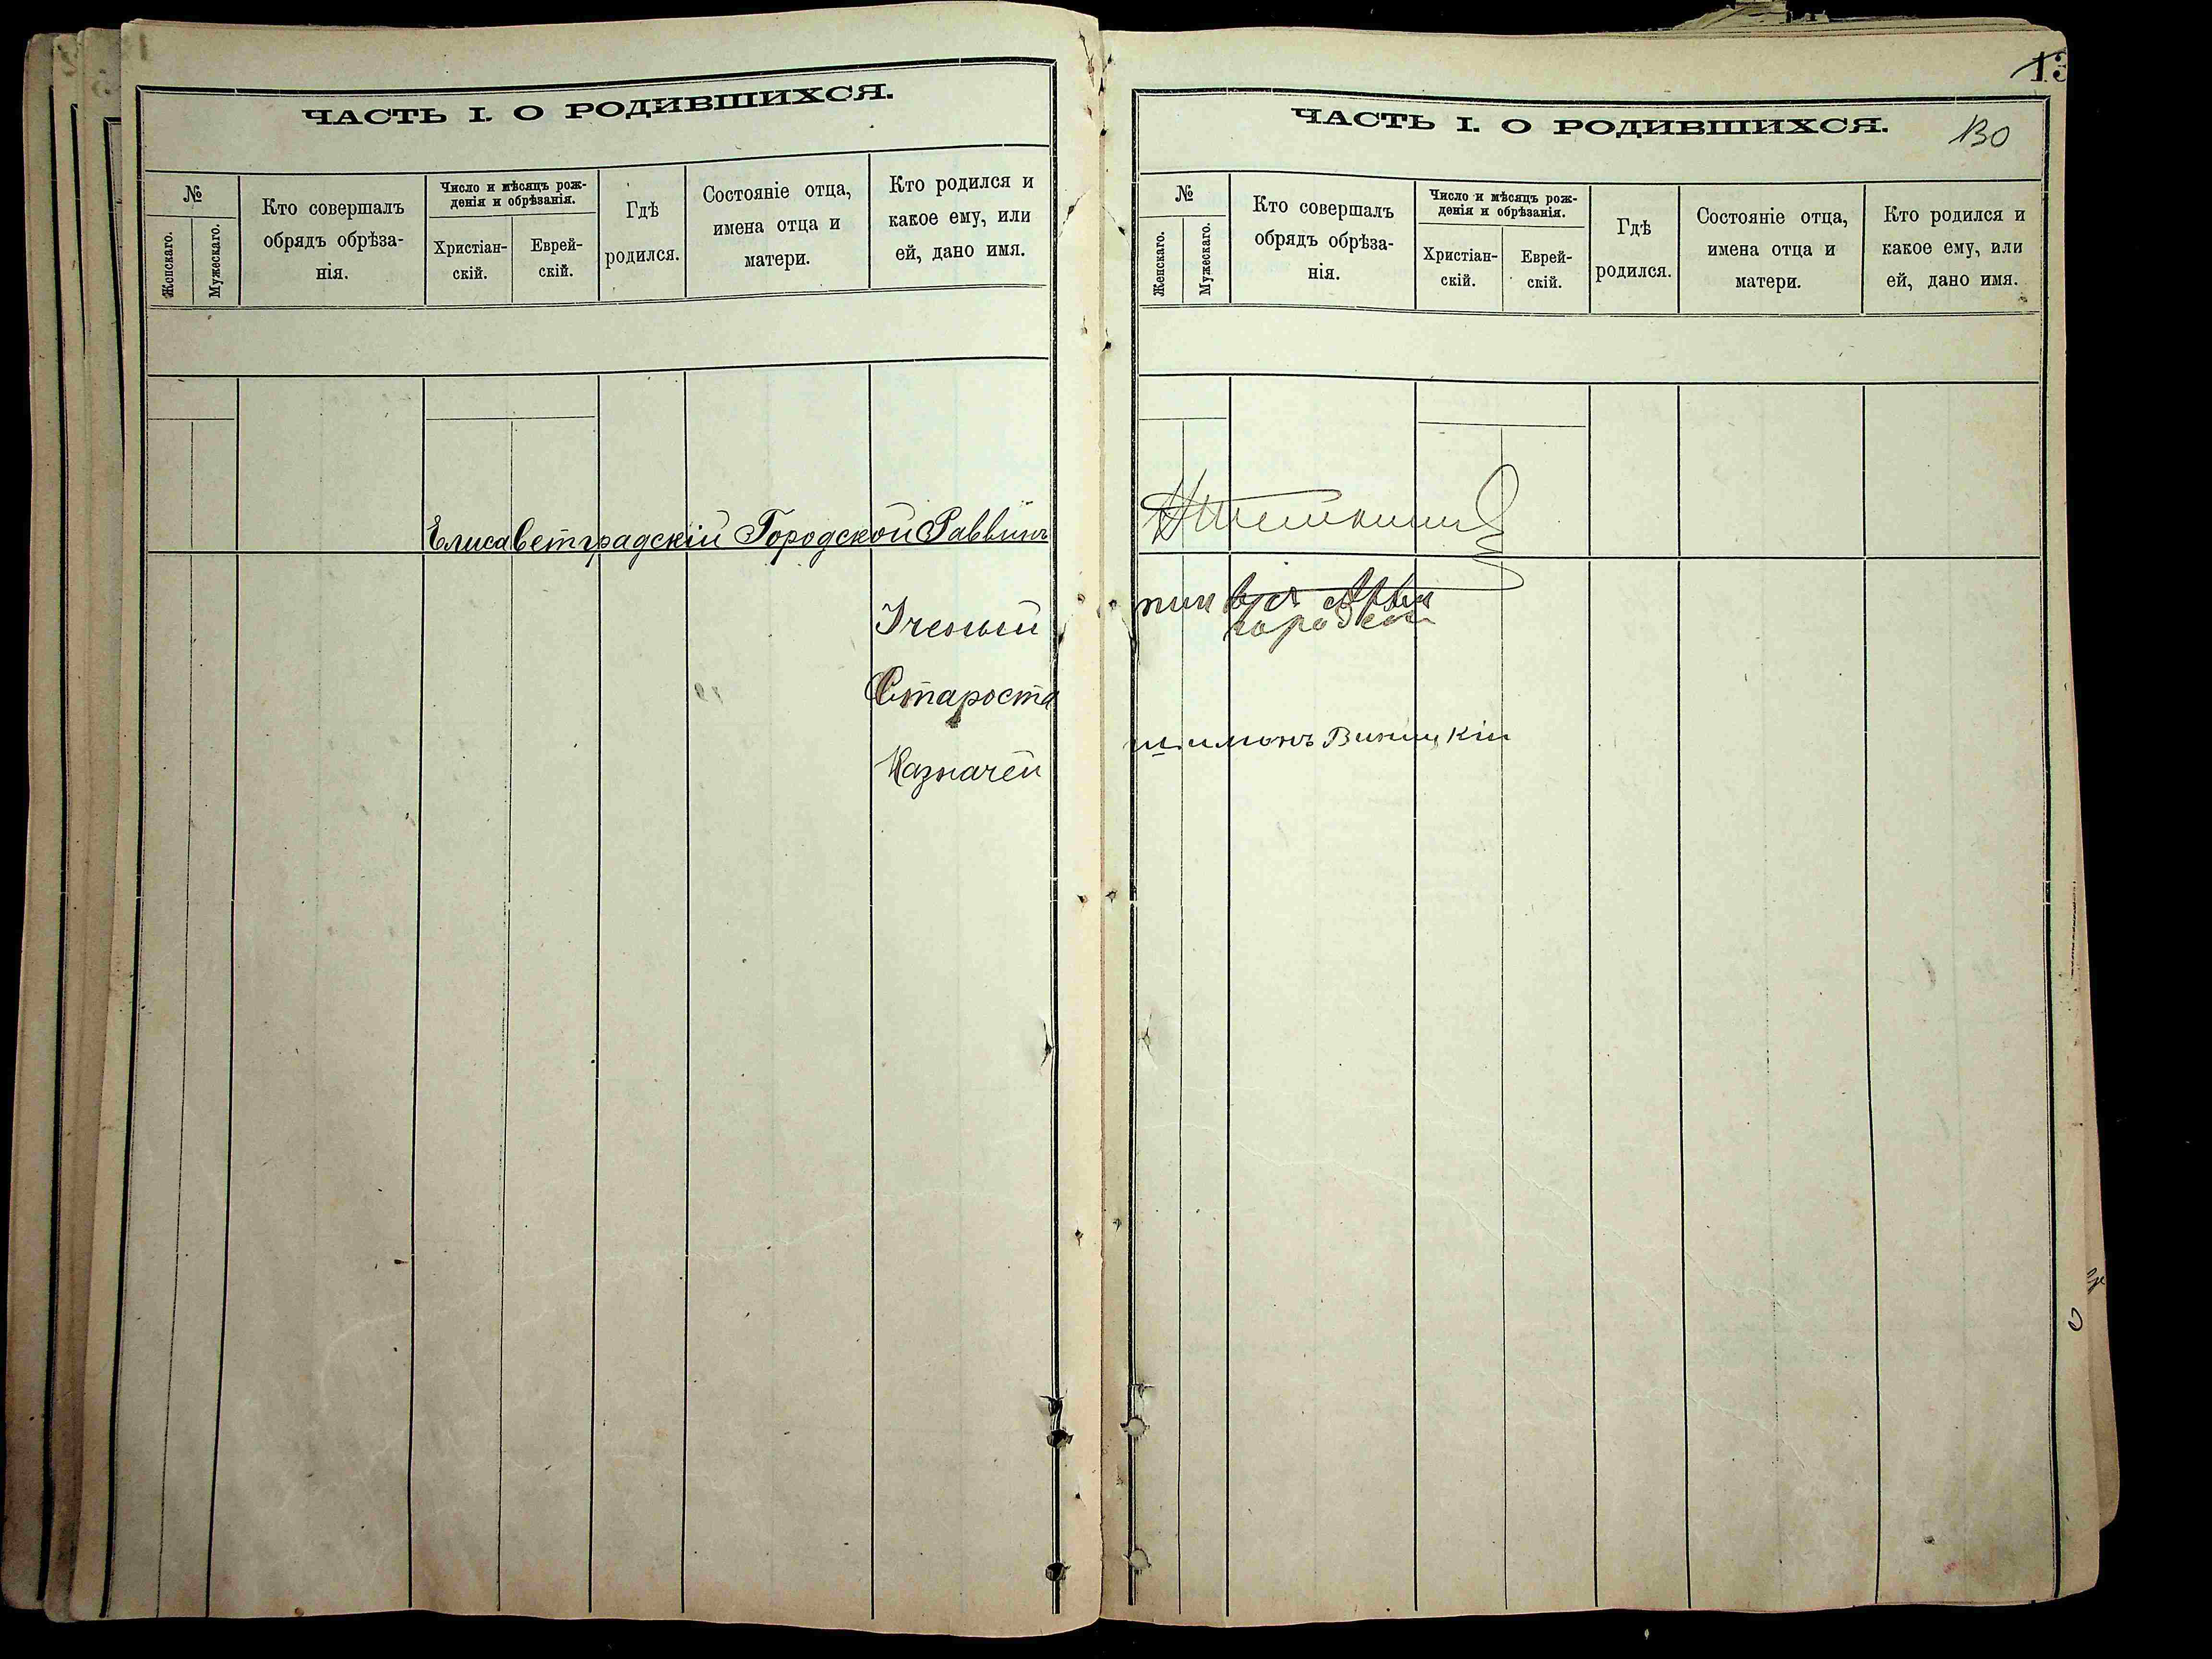 ЧАСТЬ I. О РОДИВШИХСЯ.
№
Женскаго.
Мужескаго.
Кто совершалъ
обрядъ обрѣза-
нія.
Число и мѣсяцъ рож-
денія и обрѣзанія.
Христіан-
скій.
Еврей-
скій.
Гдѣ
родился.
Состояніе отца,
имена отца и
матери.
Кто родился и
какое ему, или
ей, дано имя.
Елисаветградскій Городской Раввинъ
Ученый
Староста
Казначей
13
ЧАСТЬ I. О РОДИВШИХСЯ.
130
№
Женскаго.
Мужескаго.
Кто совершалъ
обрядъ обрѣза-
нія.
Число и мѣсяцъ рож-
денія и обрѣзанія.
Христіан-
скій.
Еврей-
скій.
Гдѣ
родился.
Состояніе отца,
имена отца и
матери.
Кто родился и
какое ему, или
ей, дано имя.
шимонъ Виницкій